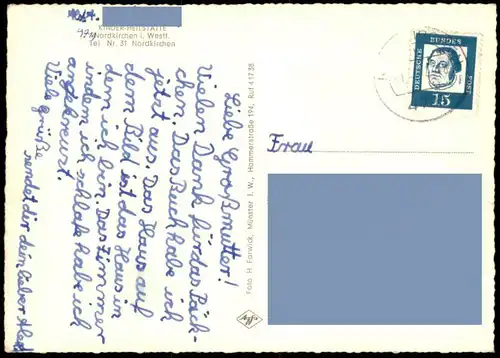 Abt.
KINDER-HEILSTÄTTE
4711 Nordkirchen i. Westf.
Tel. Nr. 31 Nordkirchen
Liebe Großmutter!
Vielen Dank für das Päck-
chen. Das Buch habe ich
jetzt aus. Das Haus auf
dem Bild ist das Haus in
dem ich bin. Das Zimmer
indem ich schlafe habe ich
angekreuzt.
Viele Grüße
sendet dir dein lieber Alex!
Foto H. Farwick, Münster i. W., Hammerstraße 194, Ruf 41738
DEUTSCHE
BUNDES
POST
15
Frau